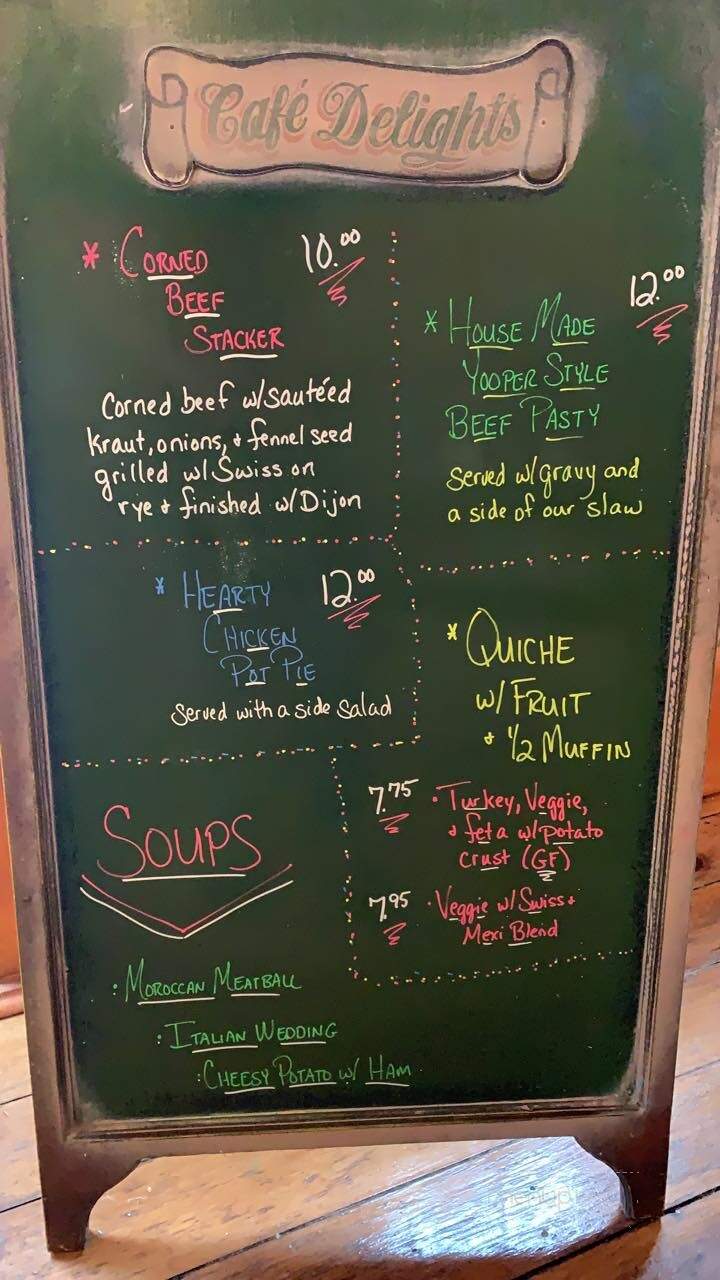 Café Delights
* CORNED 10.00
BEEF
STACKER
Corned beef w/sautéed
kraut, onions, + fennel seed
grilled w/Swiss on
rye + finished w/Dijon
* HOUSE MADE 12.00
YOOPER STYLE
BEEF PASTY
served w/gravy and
a side of our slaw
* HEARTY 12.00
CHICKEN
POT PIE
Served with a side salad
* QUICHE
w/ FRUIT
+ 1/2 MUFFIN
7.75 • Turkey, Veggie,
+ feta w/potato
crust (GF)
7.95 • Veggie w/Swiss +
Mexi Blend
SOUPS
• MOROCCAN MEATBALL
• ITALIAN WEDDING
• CHEESY POTATO w/ HAM